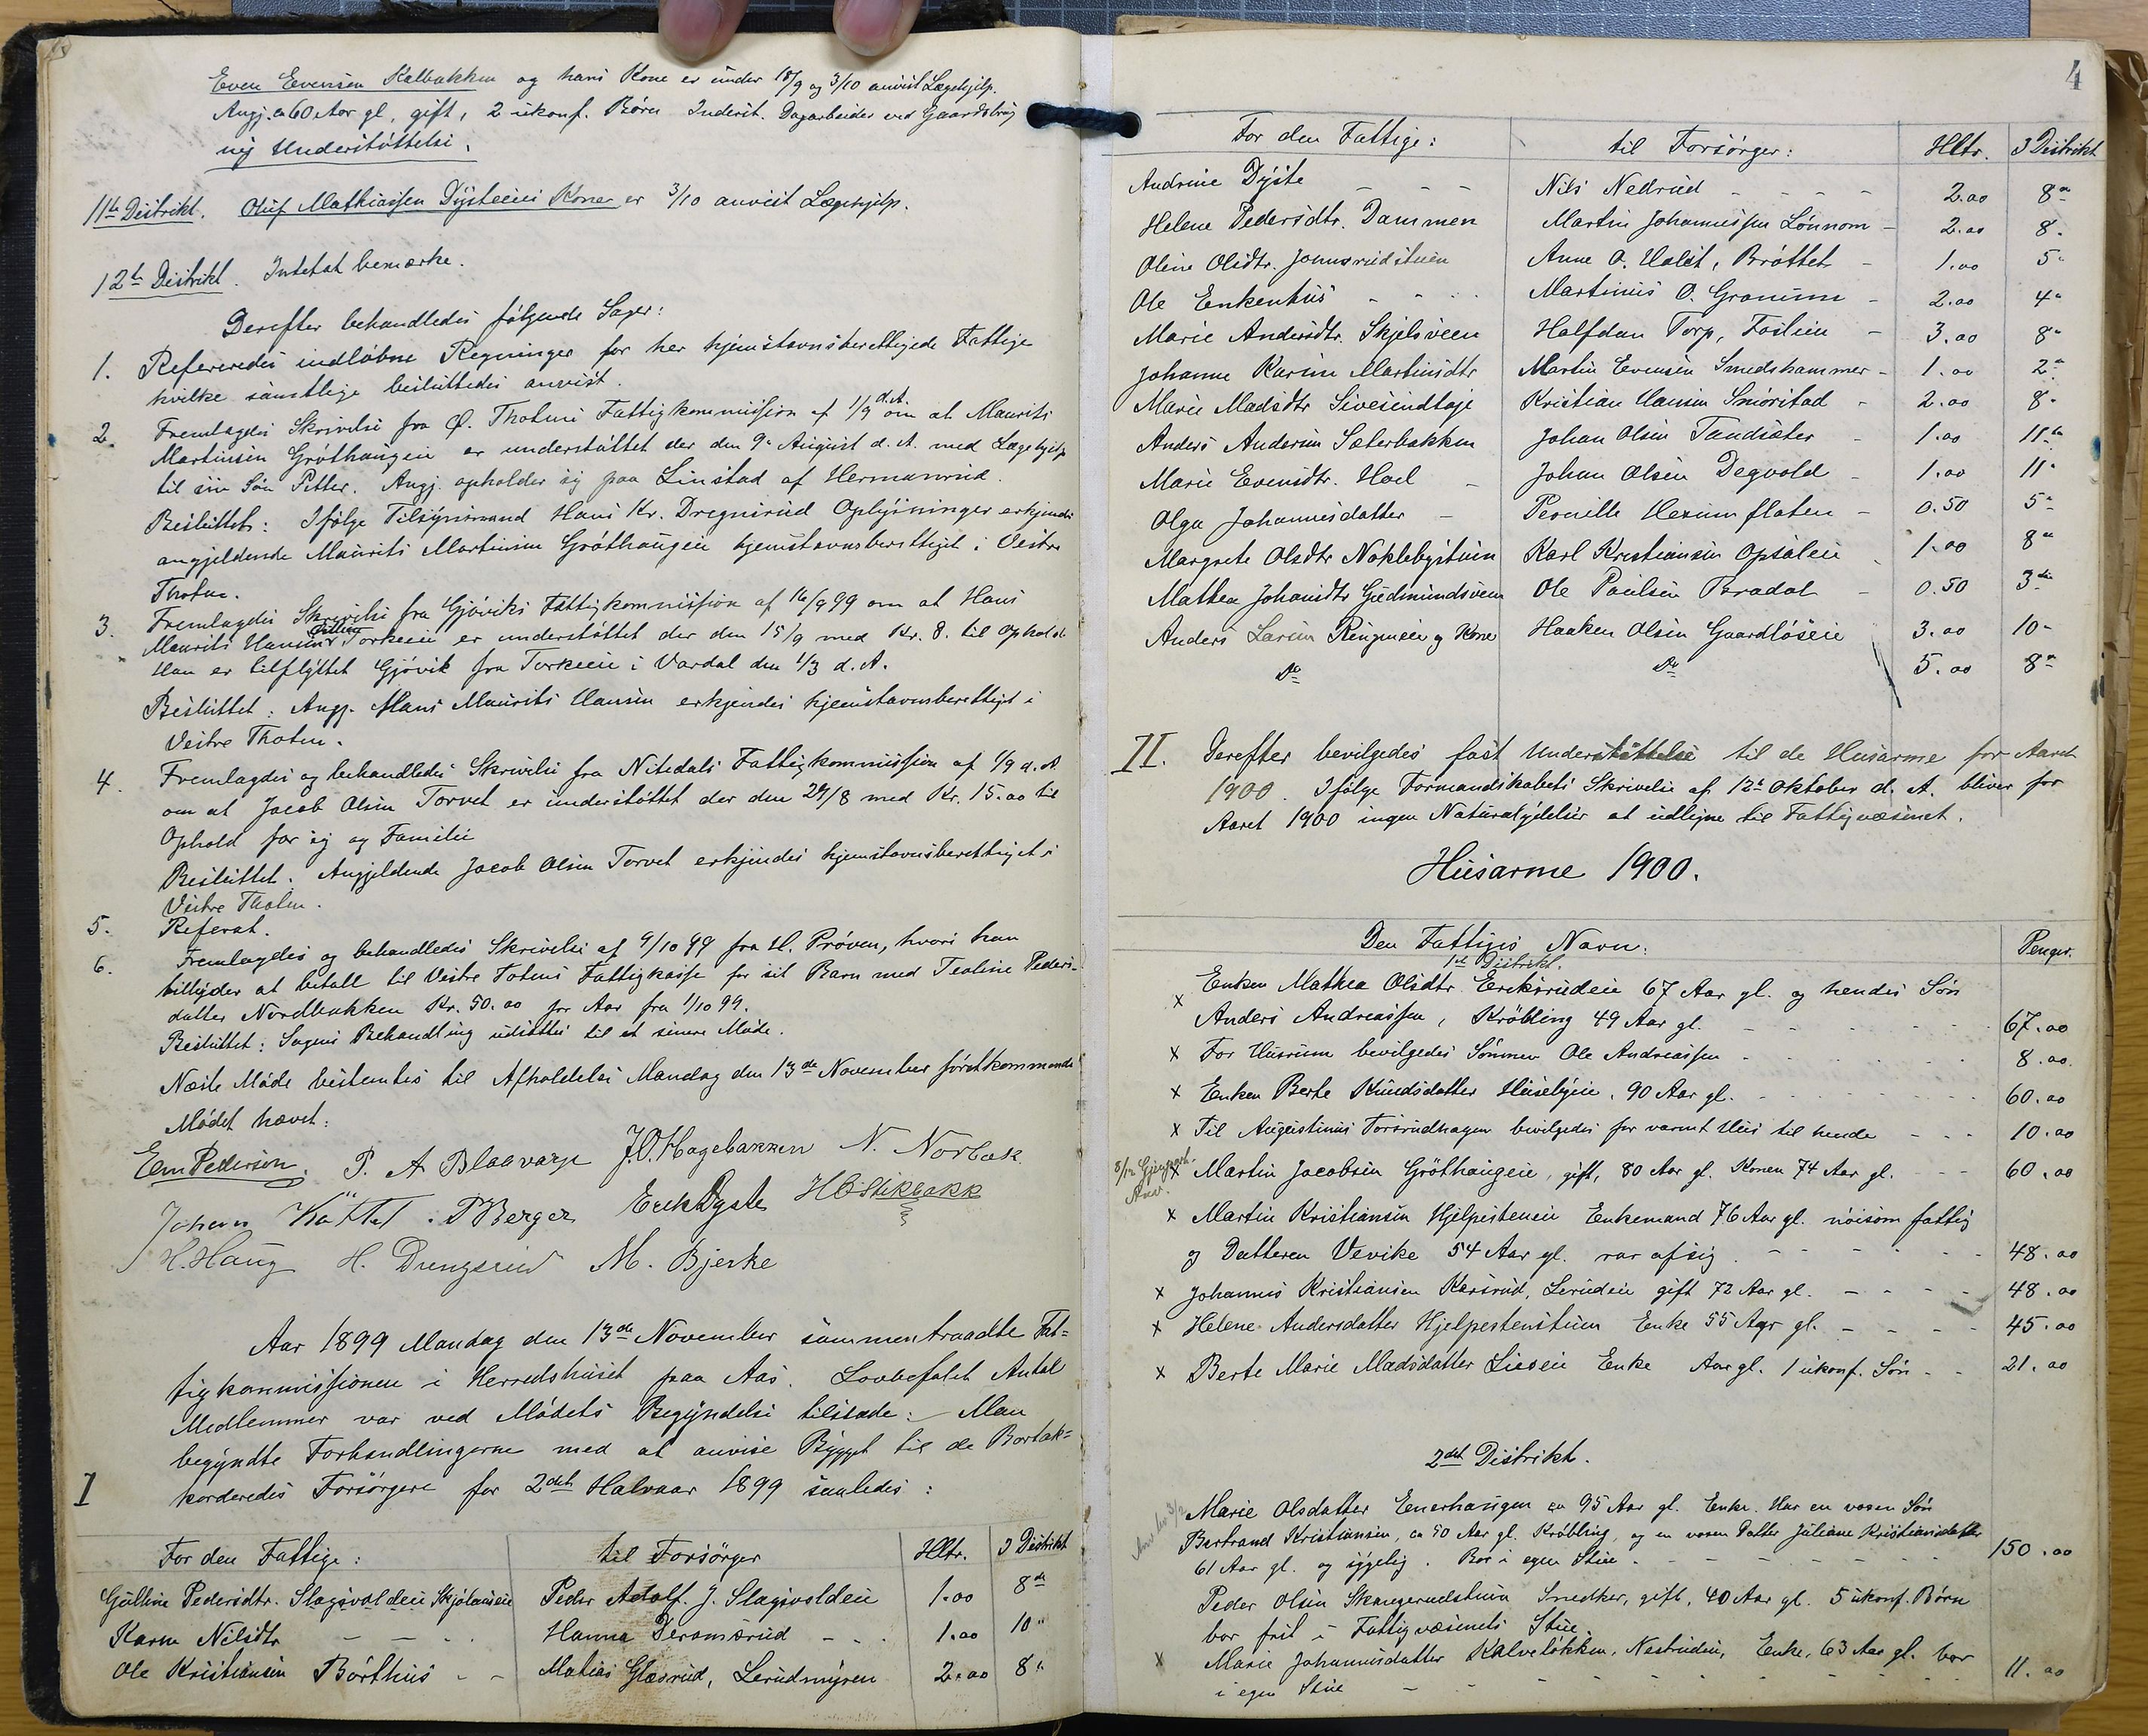 Even Evensen Kalbakken og hans Kone er under 18/9 og 3/10 anvist Lægehjelp.
Angj. ca 60 Aar gl, gift, 2 ukonf. Børn Inderst. Dagarbeider ved Gaardsbrug
nij Understøttelse.
11te Distrikt. Oluf Mathiassen Dysteeies Kone er 3/10 anvist Lægehjelp.
12te Distrikt. Intet at bemærke.
Derefter behandledes følgende Sager:
1. Refereredes indløbne Regninger for her hjemstavnsberettigede Fattige
hvilke samtlige besluttedes anvist.
2. Fremlagdes Skrivelse fra Ø. Thotens Fattigkommission af 1/9 d.A. om at Maurits
Martinsen Grøthaugeie er understøttet der den 9de August d. A. med Lægehjelp
til sin Søn Petter. Angj. opholder sig paa Linstad af Hermanrud.
Besluttet: Ifølge Tilsynsmand Hans Kr. Dregnsrud Oplysninger erkjendes
angjeldende Maurits Martinsen Grøthaugeie hjemstavnsberettiget i Vestre
Thoten.
3. Fremlagdes Skrivelse fra Gjøviks Fattigkommission af 16/9 99 om at Hans
Maurits Hansen Torkeeie er understøttet der den 15/9 med Kr. 8. til Ophold
Han er tilflyttet Gjøvik fra Torkeeie i Vardal den 1/3 d. A.
Besluttet: Angj. Hans Maurits Hansen erkjendes hjemstavnsberettiget i
Vestre Thoten.
4. Fremlagdes og behandledes Skrivelse fra Nitedals Fattigkommission af 1/9 d. A
om at Jacob Olsen Torvet er understøttet der den 29/8 med Kr. 15.00 til
Ophold for sig og Familie
Besluttet. Angjeldende Jacob Olsen Torvet erkjendes hjemstavnsberettiget i
Vestre Thoten.
5. Referat.
6. Fremlagdes og behandledes Skrivelse af 9/10 99 fra H. Prøven, hvori han
tilbyder at betale til Vestre Totens Fattigkasse for sit Barn med Teoline Peders-
datter Nordbakken Kr. 50.00 pr Aar fra 1/10 99.
Besluttet: Sagens Behandling udsattes til et senere Møde.
Næste Møde bestemtes til Afholdelse Mandag den 13de November førstkommende
Mødet hævet.
Em Pederson. P. A Blaavarp J.O. Hagebakken N. Norbæk
Johan Køttel. P Berger Erik Dyste H O Stikbakk
H. Haug H. Drengsrud M. Bjerke
Aar 1899 Mandag den 13de November sammentraadte Fat=
tigkommissionen i Herredshuset paa Aas. Lovbefalet Antal
Medlemmer var ved Mødets Begyndelse tilstæde: Man
begyndte Forhandlingerne med at anvise Bygget til de Bortak=
I korderedes Forsørgere for 2det Halvaar 1899 saaledes:
For den Fattige: til Forsørger Hltr. I Distrikt
Gulline Pedersdtr. Slagsvoldeie Skjølaaseie Peder Adolf. J. Slagsvoldeie 1.00 8de
Karen Nilsdtr Hanna Deromsrud 1.00 10"
Ole Kristiansen Børthus Matias Glæsrud, Lerudmyren 2.00 8"
4
For den Fattige: til Forsørger: Hltr. I Distrikt
Andrine Dyste Nils Nedrud 2.00 8"
Helene Pedersdtr. Dammen Martin Johannessen Lønnom 2.00 8"
Oline Olsdtr. Jonnsrudstuen Anne O. Holst, Brøttet 1.00 5"
Ole Enkenhus Martinus O. Granum 2.00 4"
Marie Andersdtr. Skjelsveen Halfdan Torp, Fosteie 3.00 8"
Johanne Karine Martinsdtr Martin Evensen Smedshammer 1.00 2"
Marie Madsdtr Sivesindtaje Kristian Hansen Smørstad 2.00 8"
Anders Andersen Sæterbakken Johan Olsen Tandsæter 1.00 11te
Marie Evensdtr. Hoel Johan Olsen Degvold 1.00 11"
Olga Johannesdatter Pernille Hexumflaten 0.50 5"
Margrete Olsdtr Nøklebystuen Karl Kristiansen Opsaleie 1.00 8"
Mathea Johansdtr Gudmundsveen Ole Paulsen Bradal 0.50 3die
Anders Larsen Ringneie og Kone Haaken Olsen Gaardløseie 3.00 10"
Do Do 5.00 8"
II. Derefter bevilgedes fast Understøttelse til de Husarme for Aaret
1900. Ifølge Formandskabets Skrivelse af 12te Oktober d. A. bliver for
Aaret 1900 ingen Naturalydelser at udligne til Fattigvæsenet.
Husarme 1900.
Den Fattiges Navn: Penger.
1ste Distrikt.
x Enken Mathea Olsdtr Eriksrudeie 67 Aar gl. og hendes Søn
Anders Andreassen, Krøbling 49 Aar gl. 67.00
x For Husrum bevilgedes Sønnen Ole Andreassen 8.00
x Enken Berte Knudsdatter Huusebyeie, 90 Aar gl. 60.00
x Til Augustinus Torsrudhagen bevilgedes for varmt Hus til hende 10.00
x Martin Jacobsen Grøthaugeie, gift, 80 Aar gl. Konen 74 Aar gl. 60.00
x Martin Kristiansen Hjelpesteneie Enkemand 76 Aar gl. nøisom fattig
og Datteren Vevike 54 Aar gl. rar af sig 48.00
x Johannes Kristiansen Karsrud, Lerudeie gift 72 Aar gl. 48.00
x Helene Andersdatter Hjelpestenstuen Enke 55 Aar gl. 45.00
x Berte Marie Madsdatter Lieseie Enke Aar gl. 1 ukonf. Søn 21.00
2det Distrikt.
Marie Olsdatter Enerhaugen ca 95 Aar gl. Enke. Har en voxen Søn
Bertrand Kristiansen, ca 50 Aar gl. Krøbling, og en voxen Datter Juliane Kristiansdatter
61 Aar gl. og sygelig. Bor i egen Stue. 150.00
Peder Olsen Skaugerudstuen Snedker, gift, 40 Aar gl. 5 ukonf. Børn
bor frit i Fattigvæsenets Stue.
x Marie Johannesdatter Kalveløkken, Nestrudeie, Enke, 63 Aar gl. bor
i egen Stue 11.00